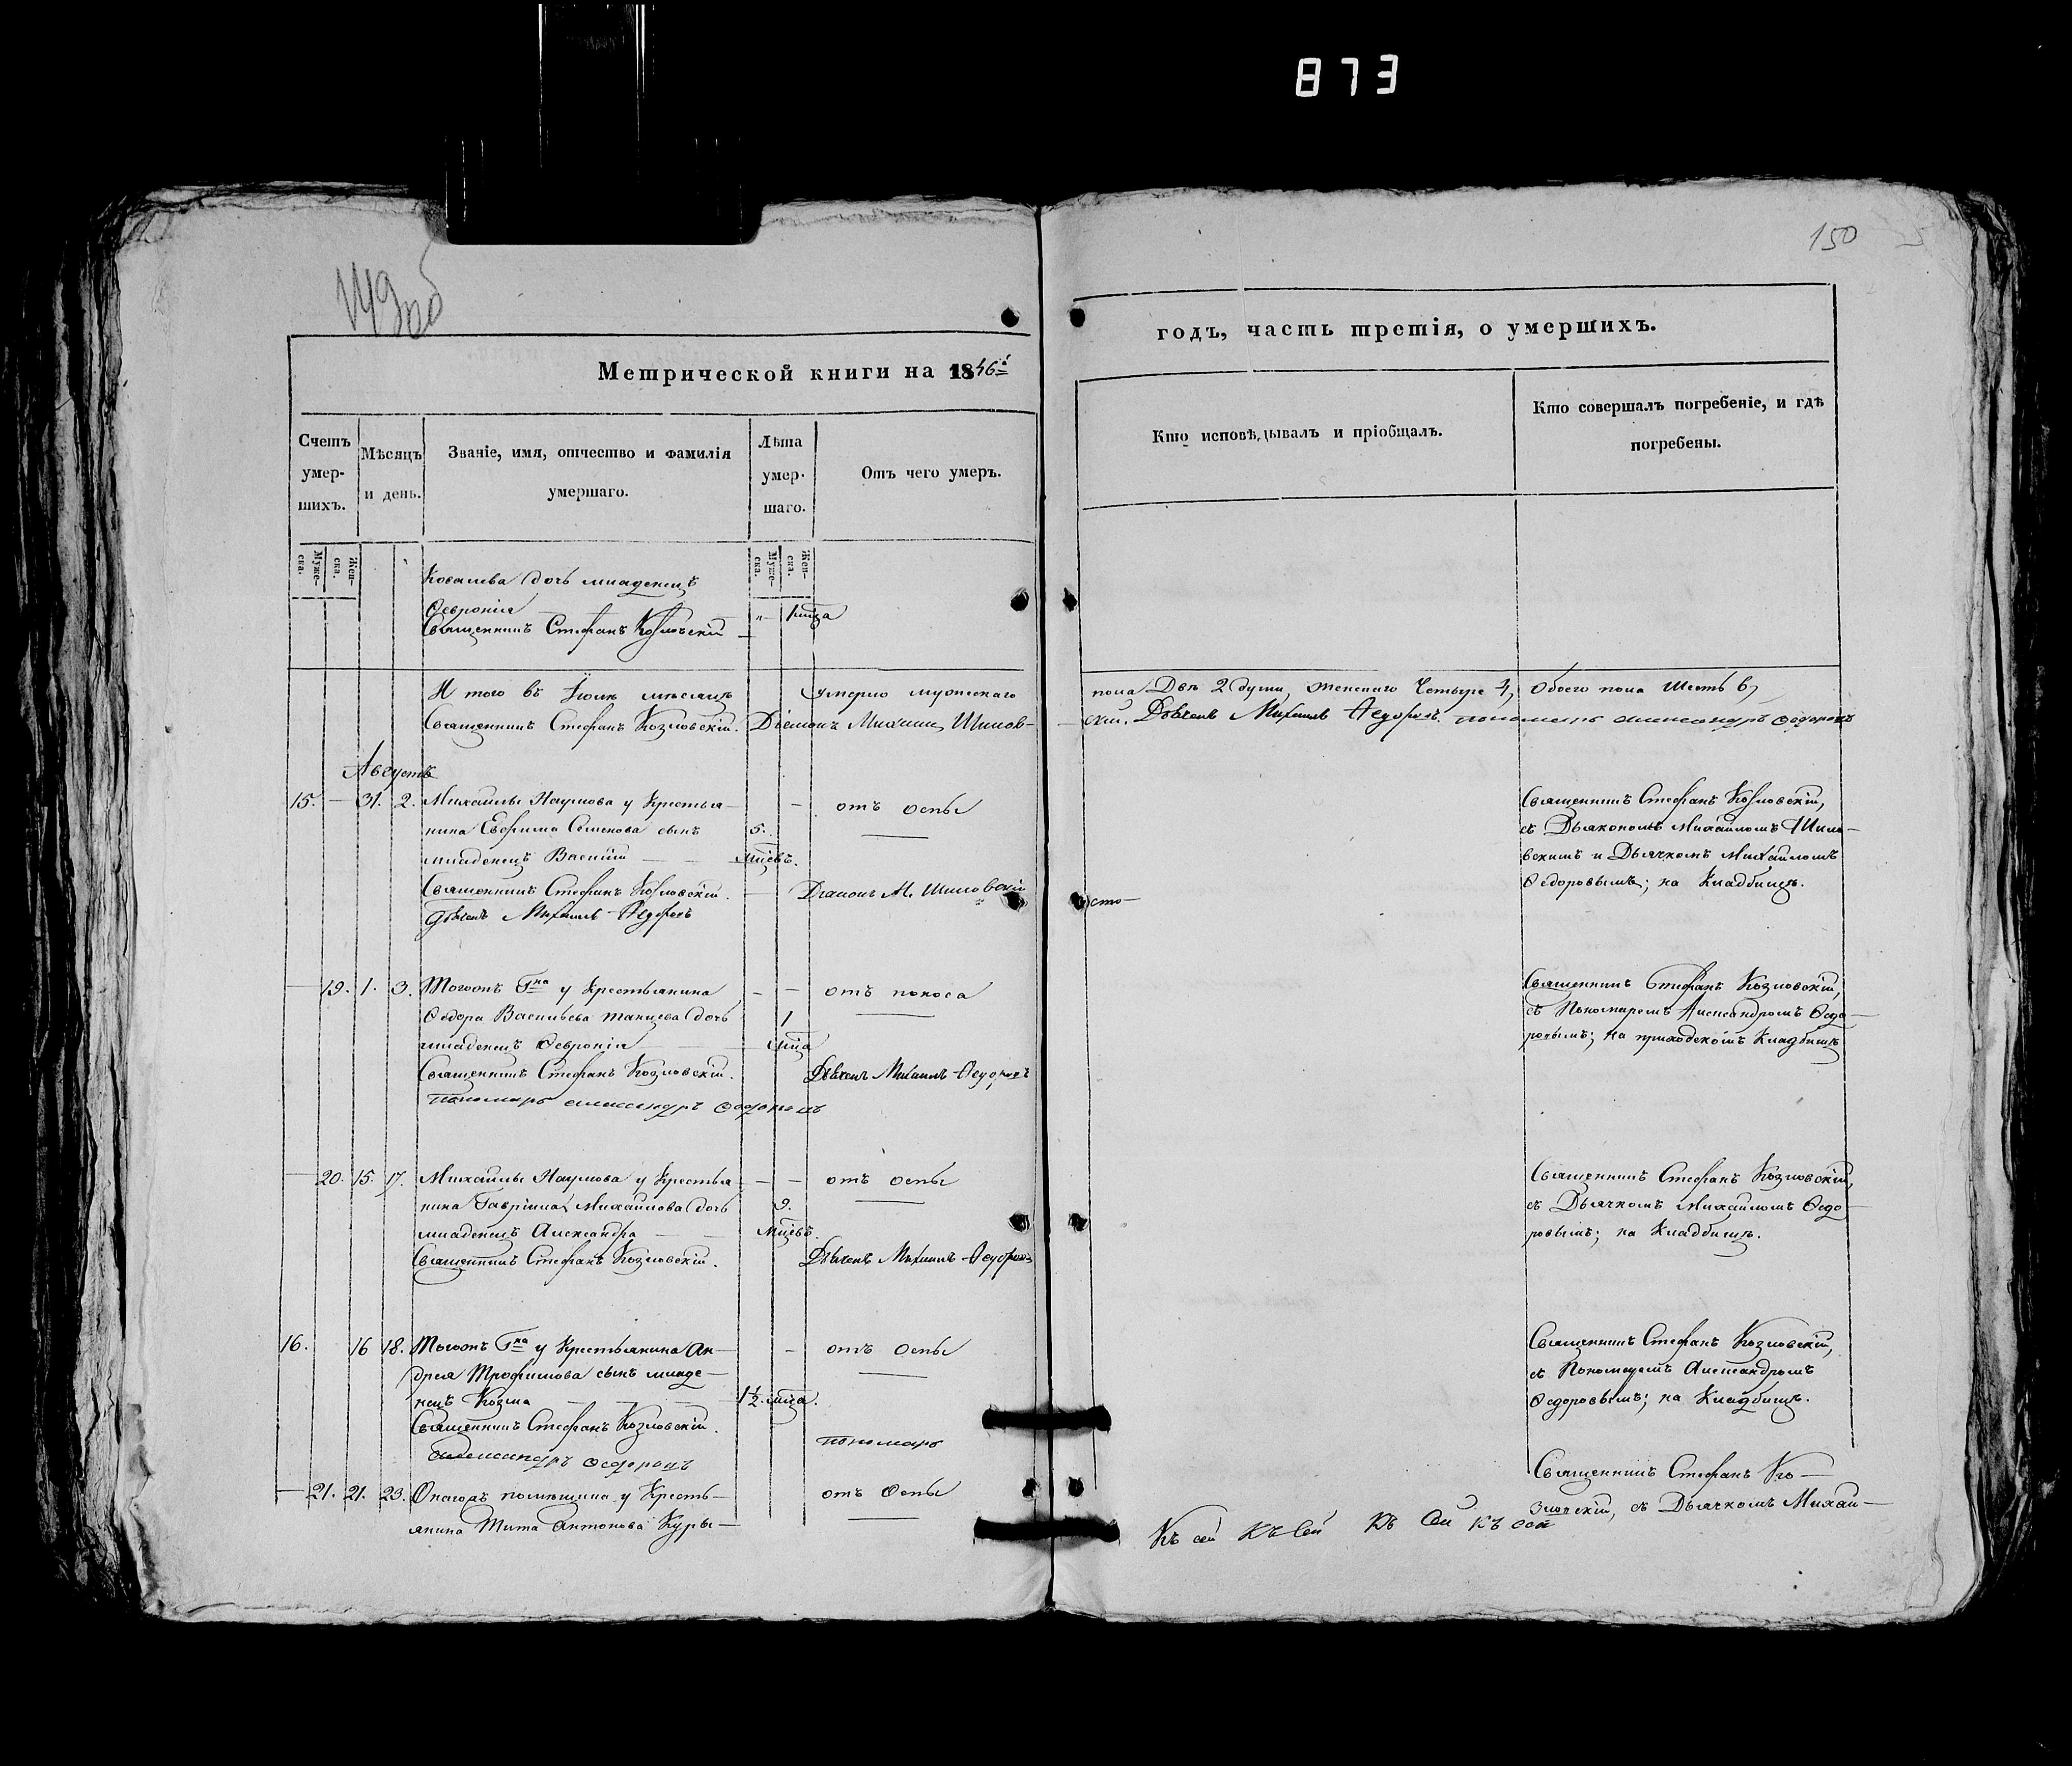 873
149 об
150
Метрической книги на 1846й
годъ, часть третія, о умершихъ.
Счетъ умер-шихъ.
Мѣсяцъ и день.
Званіе, имя, отчество и фамилія умершаго.
Лѣта умер-шаго.
Отъ чего умеръ.
Кто исповѣдывалъ и пріобщалъ.
Кто совершалъ погребеніе, и гдѣ погребены.
Муже-ска.
Жен-ска.
Муже-ска.
Жен-ска.
дочь младенецъ
Февронія
Священникъ Стефанъ Козловскій
И того въ Іюлѣ мѣсяцѣ умерло мужескаго пола Двѣ 2 души, женскаго Четыре 4, Обоего пола Шесть 6,
Священникъ Стефанъ Козловскій. Діаконъ Михаилъ Шиловскій. Дьячекъ Михаилъ Федоровъ. пономарь александръ Федоровъ
Августъ
15. — 31. 2. Михайлы Наумова у Крестья- — отъ оспы
нина Ефима Семенова сынъ 5.
младенецъ Василій мцевъ.
Священникъ Стефанъ Козловскій. Діаконъ М. Шиловскій
дьячекъ Михаилъ Федоровъ
Священникъ Стефанъ Козловскій,
съ Дьякономъ Михаиломъ Шило-
вскимъ и Дьячкомъ Михаиломъ
Федоровымъ; на Кладбищѣ.
— 19. 1. 3. Тогожъ Гна у Крестьянина — — отъ поноса
Федора Васильева дочь 1
младенецъ Февронія мца
Священникъ Стефанъ Козловскій. Дьячекъ Михаилъ Федоровъ
пономарь александръ Федоровъ
Священникъ Стефанъ Козловскій,
съ Пономаремъ Александромъ Федо-
ровымъ; на приходскомъ Кладбищѣ
— 20. 15. 17. Михайлы Наумова у Крестья- — — отъ оспы
нина Гавріила Михайлова дочь 9.
младенецъ Александра мцевъ.
Священникъ Стефанъ Козловскій. Дьячекъ Михаилъ Федоровъ
Священникъ Стефанъ Козловскій,
съ Дьячкомъ Михаиломъ Федо-
ровымъ; на Кладбищѣ.
16. 16 18. Тогожъ Гна у Крестьянина Ан- — отъ оспы
дрея Трофимова сынъ младе-
нецъ Козма 1½ мца.
Священникъ Стефанъ Козловскій. пономарь
александръ Федоровъ
Священникъ Стефанъ Козловскій,
съ Пономаремъ Александромъ
Федоровымъ; на Кладбищѣ.
— 21. 21. 23. помѣщика у Кресть- отъ Оспы
янина Тита Антонова Куры-
Священникъ Стефанъ Ко-
зловскій, съ Дьячкомъ Михаи-
Къ сей Къ Сей Къ Сей Къ сей